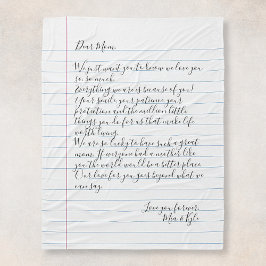 Dear Mom,
We just want you to know we love you
so, so much.
Everything we are is because of you!
Your smile, your patience, your
protection and the million little
things you do for us that make life
worth living.
We are so lucky to have such a great
mom. If everyone had a mother like
you the world would be a better place.
Our love for you goes beyond what we
can say.
Love you forever,
Mia & Kyle